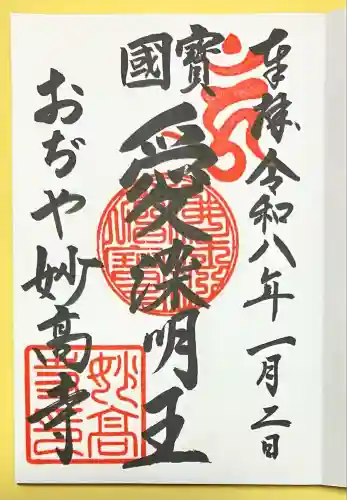 奉拝 令和八年一月二日
寳國
愛染明王
おぢや妙高寺
妙高